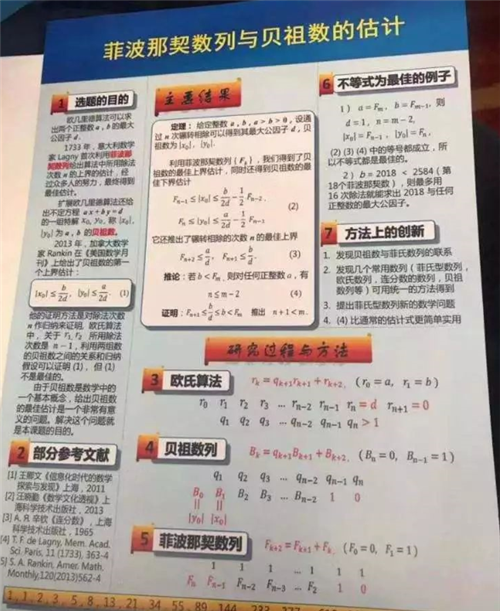 菲波那契数列与贝祖数的估计
1 选题的目的
欧几里德算法可以求
出两个正整数 a, b 的最大
公因子 d。
1733 年，意大利数学
家 Lagny 首次利用菲波那
契数列给出算法中所用除法
次数 n 的上界的估计，经
过众多人的努力，最终得到
最佳估计。
扩展欧几里德算法还给
出不定方程 ax + by = d
的一组特解 x₀, y₀，称 |x₀|,
|y₀| 为 a, b 的贝祖数。
2013 年，加拿大数学
家 Rankin 在《美国数学月
刊》上给出了贝祖数的第一
个上界估计：
|x₀| ≤ b/2d, |y₀| ≤ a/2d (1)
他的证明方法是对除法次数
n 作归纳来证明，欧氏算法
中，关于 r₁, r₂ 所用除法
次数是 n − 1，利用两组数
的贝祖数之间的关系和归纳
假设可以证明 (1)，但 (1)
不是最佳的。
由于贝祖数是数学中的
一个基本概念，给出贝祖数
的最佳估计是一个非常有意
义的问题。解决这个问题就
是本课题的目的。
2 部分参考文献
[1] 王鄂文《信息化时代的数学
探索与发现》上海，2011
[2] 汪晓勤《数学文化透视》上
海科学技术出版，2013
[3] А. Я. 辛钦《连分数》，上海
科学技术出版，1965
[4] T. F. de Lagny, Mem. Acad.
Sci. Paris, 11 (1733), 363-4
[5] S. A. Rankin, Amer. Math.
Monthly,120(2013)562-4
主要结果
定理：给定整数 a, b, a > b > 0，设通
过 n 次辗转相除可以得到其最大公因子 d，贝
祖数为 |x₀|, |y₀|。
利用菲波那契数列 {Fₖ}，我们得到了贝
祖数的最佳上界估计，同时还得到贝祖数的最
佳下界估计
Fₙ₋₁ ≤ |x₀| ≤ b/2d − 1/2 Fₙ₋₂,
(2)
Fₙ ≤ |y₀| ≤ a/2d − 1/2 Fₙ₋₁.
它还推出了辗转相除的次数 n 的最佳上界
Fₙ₊₂ ≤ a/d, Fₙ₊₁ ≤ b/d. (3)
推论：若 b < Fₘ，则对任何正整数 a，有
n ≤ m − 2 (4)
证明：Fₙ₊₁ ≤ b/d ≤ b < Fₘ 推出 n + 1 < m.
研究过程与方法
3 欧氏算法 rₖ = qₖ₊₁rₖ₊₁ + rₖ₊₂, (r₀ = a, r₁ = b)
r₀ r₁ r₂ r₃ ... rₙ₋₂ rₙ₋₁ rₙ = d rₙ₊₁ = 0
q₁ q₂ q₃ ... qₙ₋₂ qₙ₋₁ qₙ > 1
4 贝祖数列 Bₖ = qₖ₊₁Bₖ₊₁ + Bₖ₊₂, (Bₙ = 0, Bₙ₋₁ = 1)
q₁ q₂ q₃ ... qₙ₋₂ qₙ₋₁ qₙ
B₀ B₁ B₂ B₃ ... Bₙ₋₂ 1 0
|| ||
|y₀| |x₀|
5 菲波那契数列 Fₖ₊₂ = Fₖ₊₁ + Fₖ, (F₀ = 0, F₁ = 1)
1 1 1 ... 1 1 1
Fₙ Fₙ₋₁ Fₙ₋₂ Fₙ₋₃ ... F₂ 1 0
6 不等式为最佳的例子
1) a = Fₘ, b = Fₘ₋₁, 则
d = 1, n = m − 2,
|x₀| = Fₙ₋₁, |y₀| = Fₙ.
(2) (3) (4) 中的等号都成立，所
以不等式都是最佳的。
2) b = 2018 < 2584 (第
18个菲波那契数)，则最多用
16 次除法就能求出 2018 与任何
正整数的最大公因子。
7 方法上的创新
1. 发现贝祖数与菲氏数列的联系
2. 发现几个常用数列 (菲氏型数列，
欧氏数列，连分数的数列，贝祖
数列等) 可用统一的方法得到
3. 提出菲氏型数列新的数学问题
4. (4) 比通常的估计式更简单实用
1, 1, 2, 3, 5, 8, 13, 21, 34, 55, 89, 144, 233